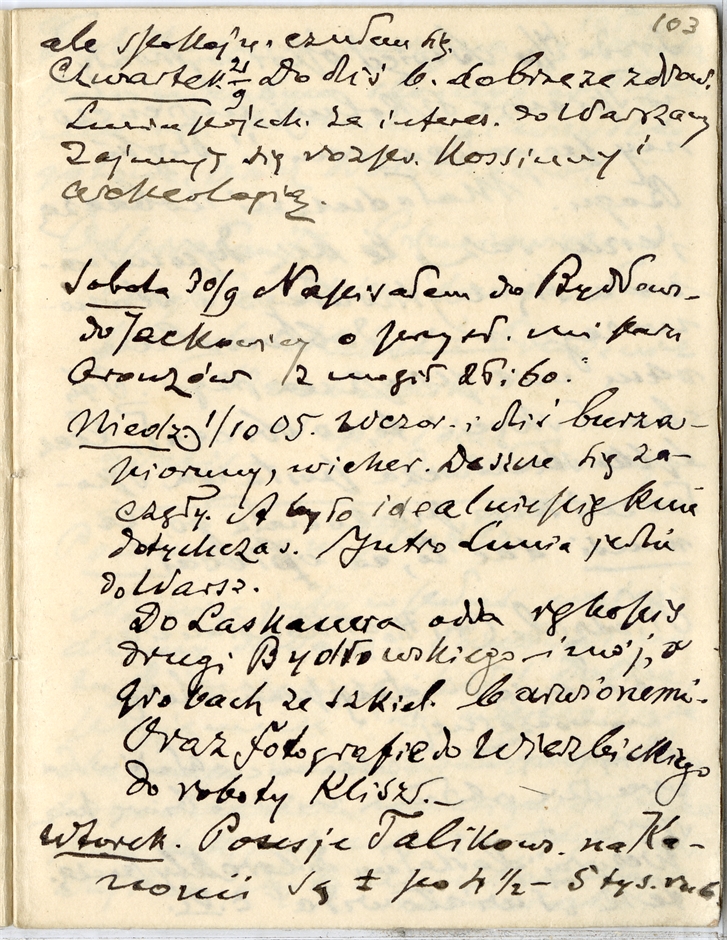 103
ale spokojn. czułam się.
Czwartek 21/9 Do dziś b. dobrze ze zdrow.
Lunia pojech. za interes. do Warszawy
Zajmuję się rozpr. Kossinny i
archeologią.
Sobota 30/9 Napisałem do Bydłow-
do Jackowicy o przysł. mi paru
bronzów z mogił 28 i 60.
Niedz. 1/10 05. Wczor. i dziś burza-
pioruny, wicher. Deszcze się za-
częły. A było idealnie pięknie
dotychczas. Jutro Lunia jedzie
do Warsz.
Do Laskauera odda rękopis
drugi Bydłowskiego i mój, o
grobach ze szkiel. barwionemi-
Oraz fotografie do Wierzbickiego
do roboty Klisz.
Wtorek. Posesje Talikows. na Ka-
nonii są ± po 4 1/2 - 5 tys. rub.